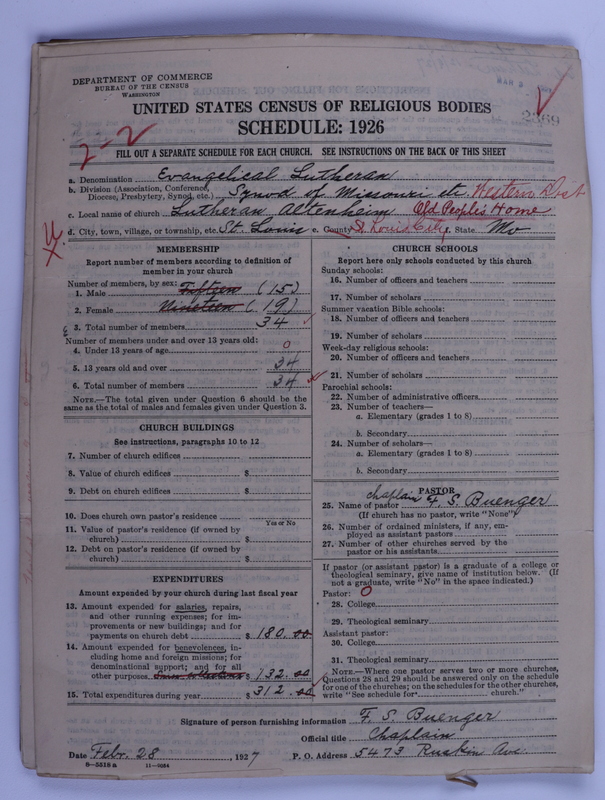 DEPARTMENT OF COMMERCE
BUREAU OF THE CENSUS
WASHINGTON
MAR 3
2369
UNITED STATES CENSUS OF RELIGIOUS BODIES
SCHEDULE: 1926
2-2
FILL OUT A SEPARATE SCHEDULE FOR EACH CHURCH. SEE INSTRUCTIONS ON THE BACK OF THIS SHEET
a. Denomination Evangelical Lutheran
b. Division (Association, Conference, Diocese, Presbytery, Synod, etc.) Synod of Missouri etc Western Dist
c. Local name of church Lutheran Altenheim Old People's Home
d. City, town, village, or township, etc. St. Louis e. County St. Louis City f. State Mo
MEMBERSHIP
Report number of members according to definition of member in your church
Number of members, by sex:
1. Male Fifteen (15)
2. Female Nineteen (19)
3. Total number of members 34
Number of members under and over 13 years old:
4. Under 13 years of age 0
5. 13 years old and over 34
6. Total number of members 34
NOTE.—The total given under Question 6 should be the
same as the total of males and females given under Question 3.
CHURCH BUILDINGS
See instructions, paragraphs 10 to 12
7. Number of church edifices
8. Value of church edifices $
9. Debt on church edifices $
10. Does church own pastor's residence
Yes or No
11. Value of pastor's residence (if owned by
church) $
12. Debt on pastor's residence (if owned by
church) $
EXPENDITURES
Amount expended by your church during last fiscal year
13. Amount expended for salaries, repairs,
and other running expenses; for im-
provements or new buildings; and for
payments on church debt $ 180.00
14. Amount expended for benevolences, in-
cluding home and foreign missions; for
denominational support; and for all
other purposes $ 132.00
15. Total expenditures during year $ 312.00
CHURCH SCHOOLS
Report here only schools conducted by this church
Sunday schools:
16. Number of officers and teachers
17. Number of scholars
Summer vacation Bible schools:
18. Number of officers and teachers
19. Number of scholars
Week-day religious schools:
20. Number of officers and teachers
21. Number of scholars
Parochial schools:
22. Number of administrative officers
23. Number of teachers—
a. Elementary (grades 1 to 8)
b. Secondary
24. Number of scholars—
a. Elementary (grades 1 to 8)
b. Secondary
PASTOR
25. Name of pastor chaplain F. S. Buenger
(If church has no pastor, write "None")
26. Number of ordained ministers, if any, em-
ployed as assistant pastors
27. Number of other churches served by the
pastor or his assistants
If pastor (or assistant pastor) is a graduate of a college or
theological seminary, give name of institution below. (If
not a graduate, write "No" in the space indicated.)
Pastor: 0
28. College
29. Theological seminary
Assistant pastor:
30. College
31. Theological seminary
NOTE.—Where one pastor serves two or more churches,
Questions 28 and 29 should be answered only on the schedule
for one of the churches; on the schedules for the other churches,
write "See schedule for church."
Signature of person furnishing information F. S. Buenger
Official title Chaplain
Date Febr. 28, 1927 P. O. Address 5473 Ruskin Ave
8-5518 a 11-9034